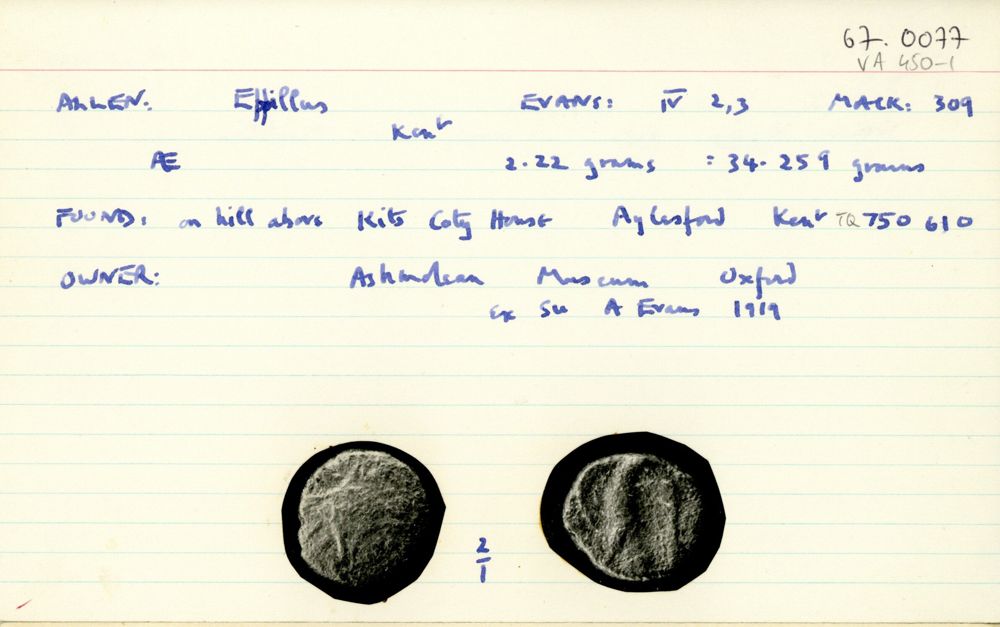 67.0077
VA 450-1
ALLEN: Eppillus EVANS: IV 2,3 MACK: 309
Kent
Æ 2.22 grams = 34.259 grams
FOUND: on hill above Kits Coty House Aylesford Kent TQ 750 610
OWNER: Ashmolean Museum Oxford
ex Sir A Evans 1919
2
1